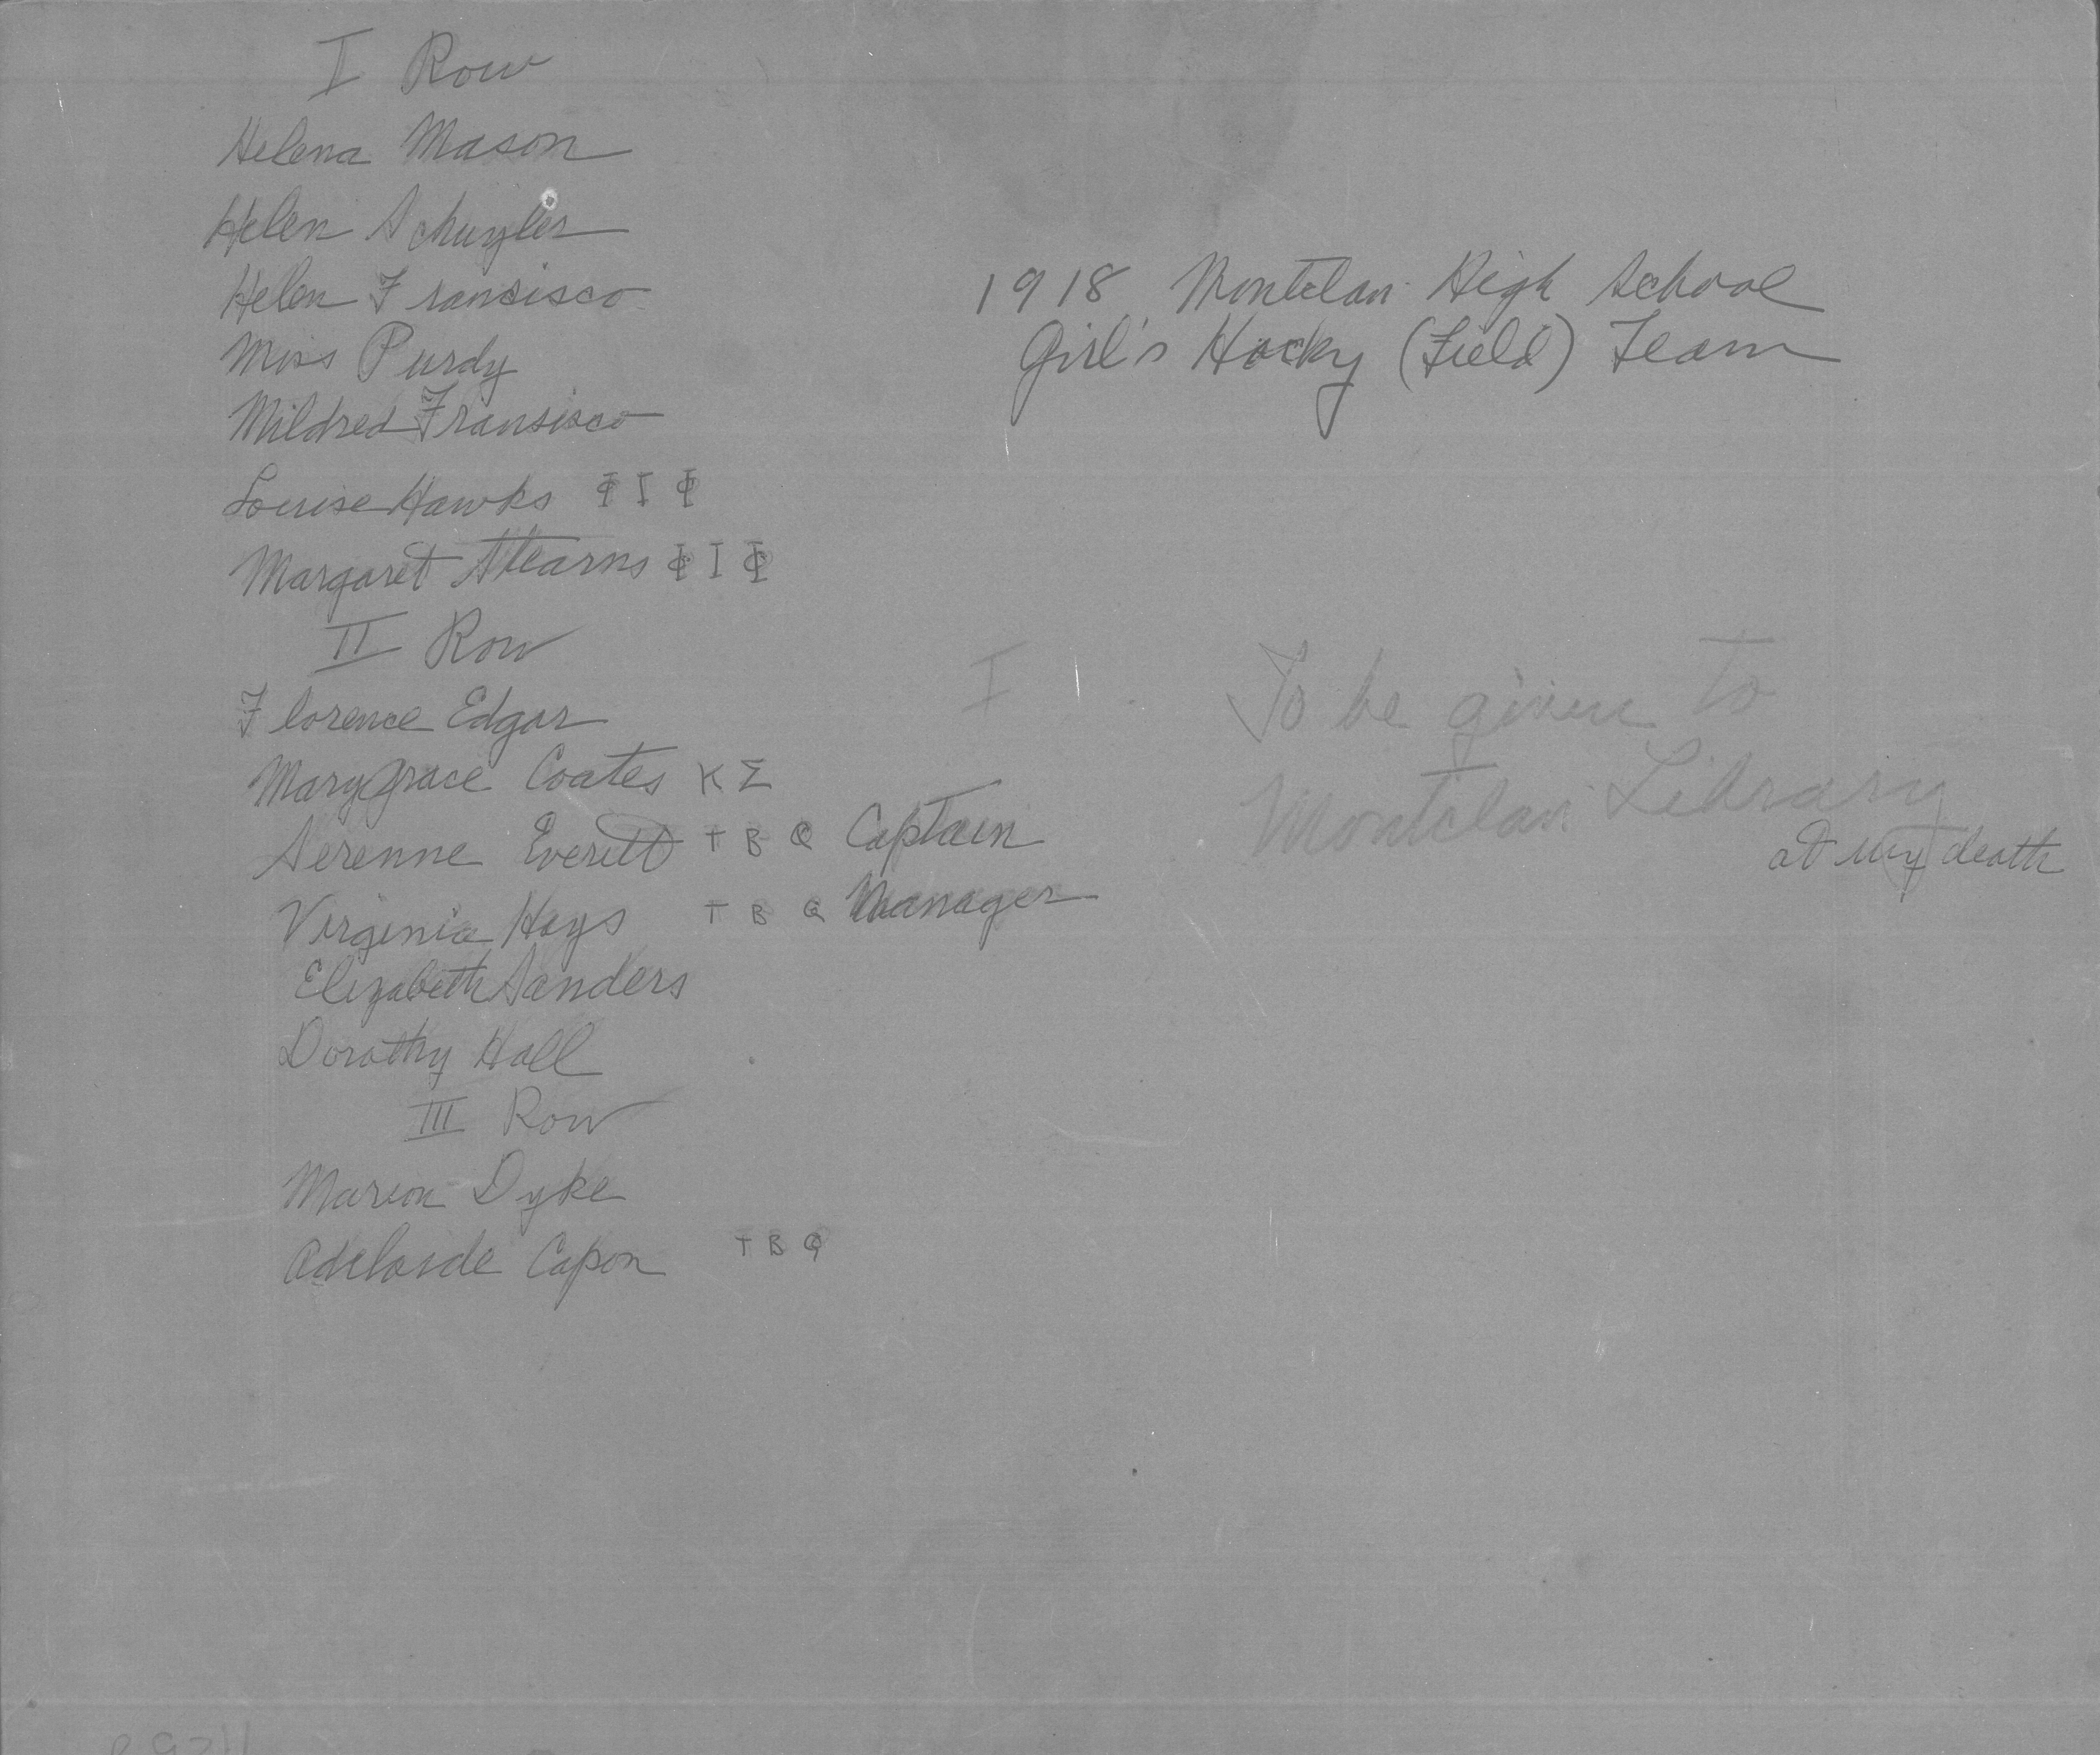 I Row
Helena Mason
Helen Schuyler
Helen Fransisco
Miss Purdy
Mildred Fransisco
Louise Hawks Φ I Φ
Margaret Stearns Φ I Φ
II Row
Florence Edgar
Marygrace Coates K Σ
Serenne Everett T B Q Captain
Virginia Hays T B Q Manager
Elizabeth Sanders
Dorothy Hall
III Row
Marion Dyke
Adelaide Capon T B Q
1918 Montclair High School
Girl's Hocky (Field) Team
I
To be given to
Montclair Library
at my death